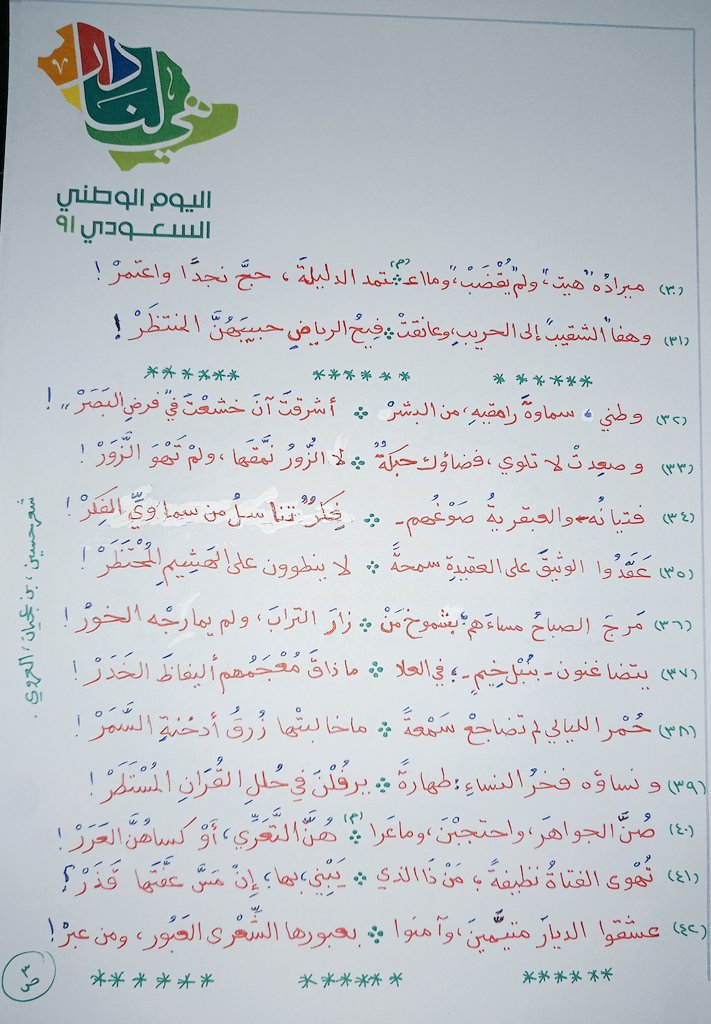 هي لنا دار
اليوم الوطني
السعودي ٩١
(٣٠) ميرادُه "هيت"، ولم "يُقْضَبْ"، وما اعـ (م) ـتمد الدليلةَ، حجَّ نجدًا واعتمرْ!
(٣١) وهفا "الشقيبُ" إلى الحريبِ، وعانقتْ فِيحُ الرياضِ حبيبَهُنَّ المنتظَرْ!
****** ****** ******
(٣٢) وطني، سماوةُ رامقيهِ، من البشرْ أشرقتَ آنَ خشعْتَ في "فرضِ البَصَرْ"!
(٣٣) وصعِدتْ لا تلوي، فضاؤك حبكةٌ لا الزُّورُ نمَّقَها، ولمْ تَهْوَ الزَّوَرْ!
(٣٤) فتيانُه - والعبقريةُ صَوْغُهم - فِكَرٌ تناسلُ من سماويِّ الفِكَرْ!
(٣٥) عَقَدُوا الوثيقَ على العقيدةِ سمحةً لا ينطوون على الهَشِيمِ المُحْتَظَرْ!
(٣٦) مَرجَ الصباحُ مساءَهم؛ بشموخِ مَنْ زارَ الترابَ، ولم يمارجْه الخورْ!
(٣٧) يتضاغنون - بنُبْلِ خِيمٍ -؛ في العلا ما ذاقَ مُعْجَمُهم أليفاظَ الخَدَرْ!
(٣٨) حُمْر الليالي لم تضاجعْ سَمْعةً ما خالبتْها زُرقُ أدخنةِ السَّمَرْ!
(٣٩) ونساؤه فخرُ النساءِ؛ طهارةً يرفُلْنَ في حُللِ القُرَانِ المُسْتَطَرْ!
(٤٠) صُنَّ الجواهرَ، واحتجبْنَ، وما عَرا (م) هُنَّ التَّعَرِّي، أوْ كساهُنَّ العَرَرْ!
(٤١) تُهْوى الفتاةُ نظيفةً؛ مَنْ ذَا الذي يَبْنِي بها؛ إنْ مَسَّ عفَّتَها قَذَرْ؟
(٤٢) عشقوا الديارَ متيَّمينَ، وآمنوا بعبورها الشِّعْرى العَبُور، ومن عبرْ!
****** ***** ******
شعر حسين، بن العروي.
ص٣